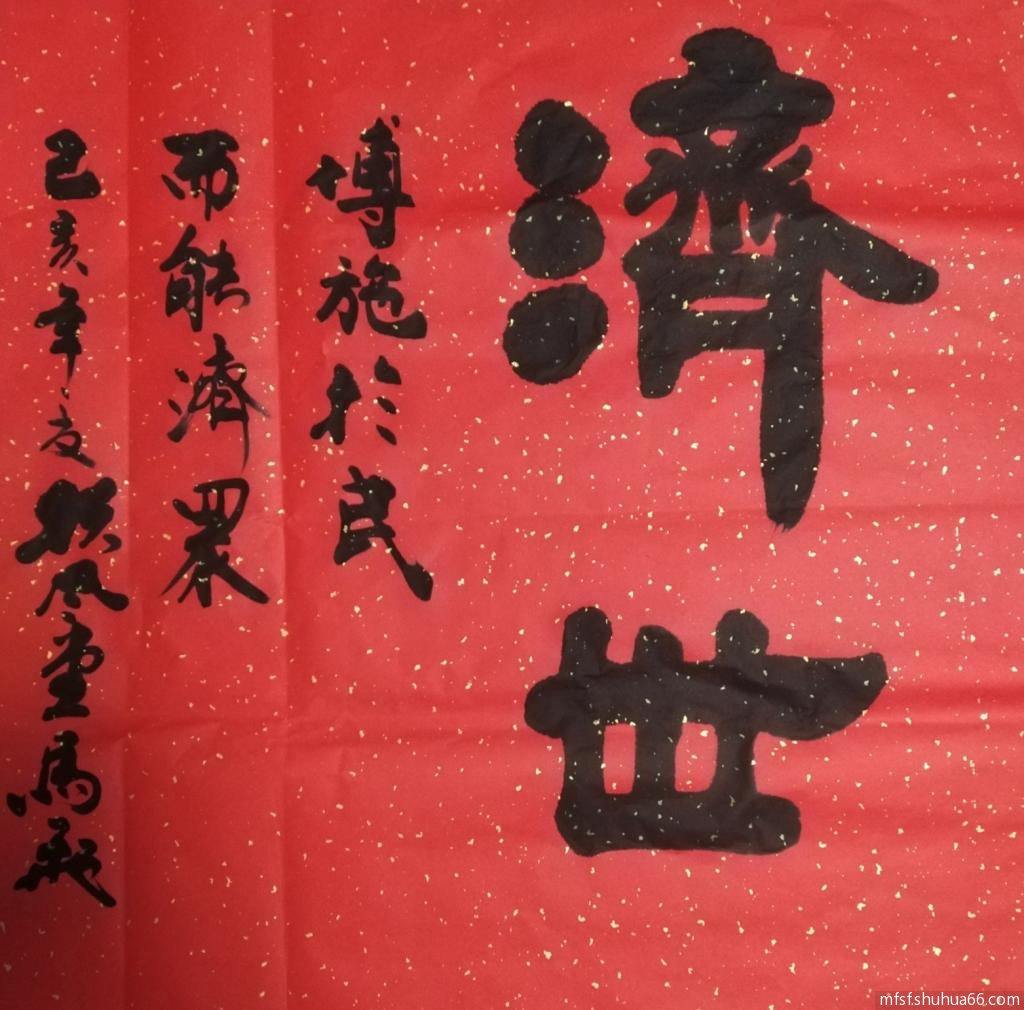 濟世
博施於民
而能濟眾
己亥年夏扶风堂馬
mfsf.shuhua66.com